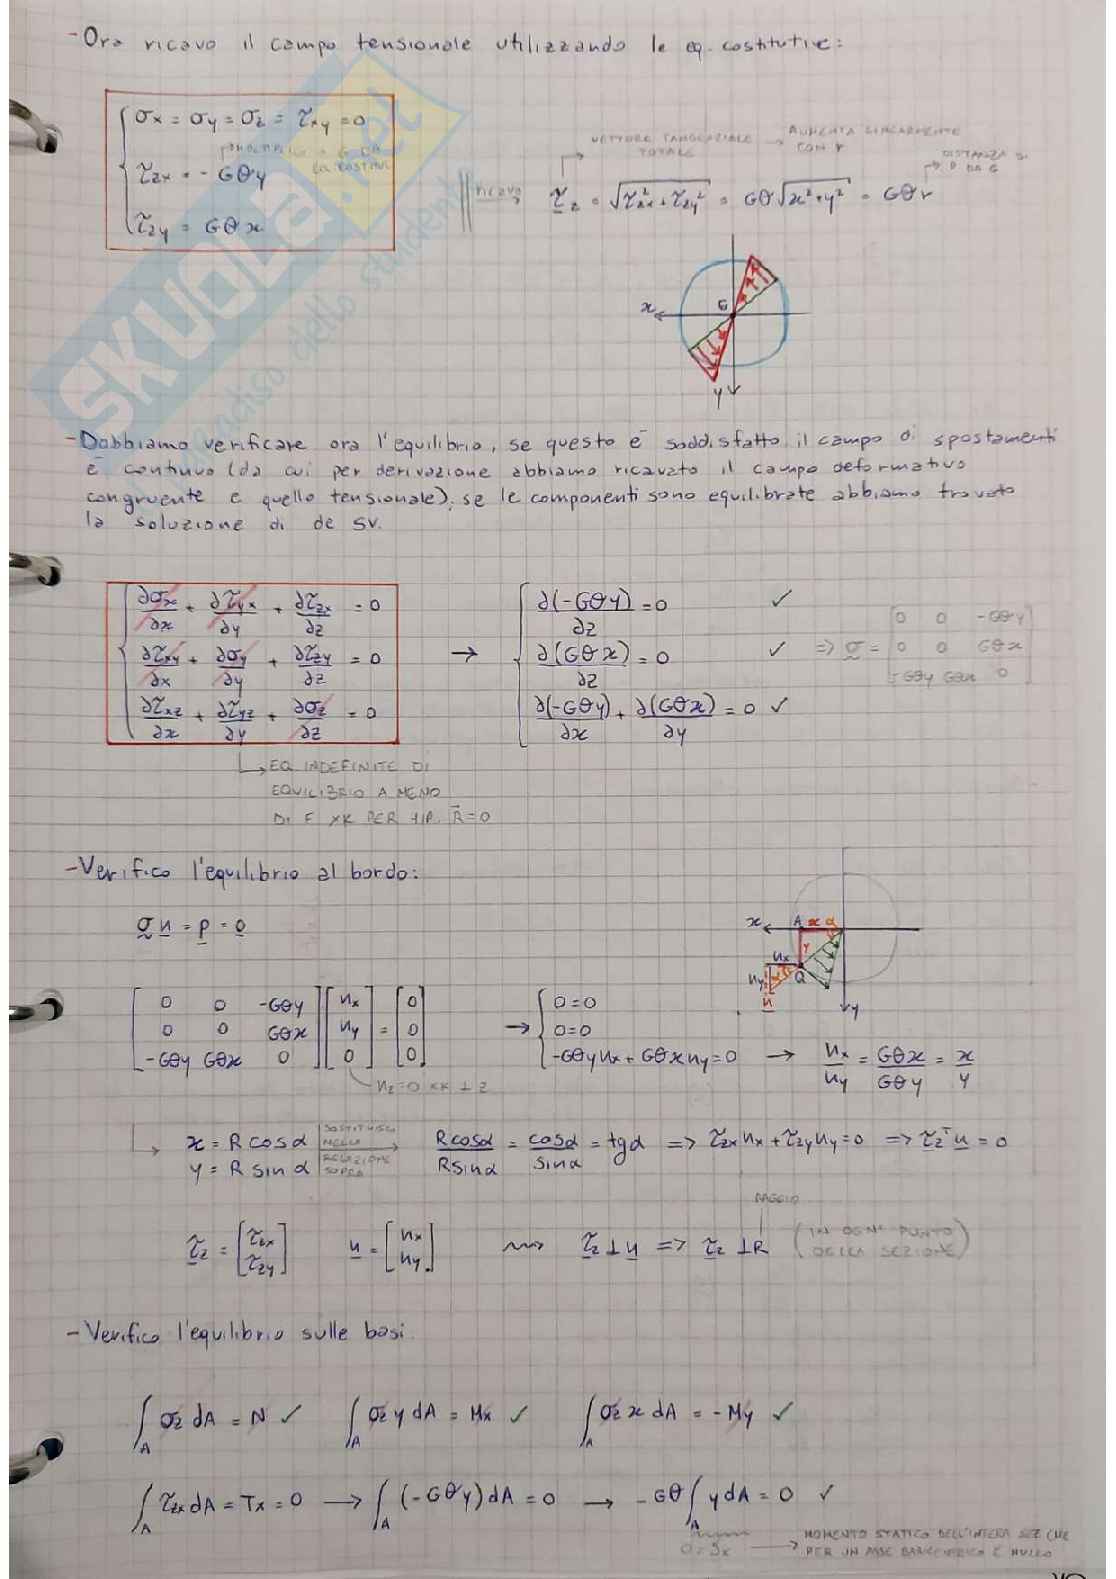 - Ora ricavo il campo tensionale utilizzando le eq. costitutive:
σx = σy = σz = τxy = 0
τzx = - Gθy
τzy = Gθx
ricavo
τz = √(τzx² + τzy²) = Gθ √(x² + y²) = Gθr
VETTORE TANGENZIALE TOTALE → AUMENTA LINEARMENTE CON r
DISTANZA DI P DA G
G
x
y
- Dobbiamo verificare ora l'equilibrio, se questo è soddisfatto il campo di spostamenti
è continuo (da cui per derivazione abbiamo ricavato il campo deformativo
congruente e quello tensionale), se le componenti sono equilibrate abbiamo trovato
la soluzione di de SV.
∂σx/∂x + ∂τyx/∂y + ∂τzx/∂z = 0
∂τxy/∂x + ∂σy/∂y + ∂τzy/∂z = 0
∂τxz/∂x + ∂τyz/∂y + ∂σz/∂z = 0
→
∂(-Gθy)/∂z = 0 ✓
∂(Gθx)/∂z = 0 ✓
∂(-Gθy)/∂x + ∂(Gθx)/∂y = 0 ✓
=> σ =
0 0 -Gθy
0 0 Gθx
-Gθy Gθx 0
EQ INDEFINITE DI
EQUILIBRIO A MENO
DI F XK PER HP. R⃗=0
- Verifico l'equilibrio al bordo:
σ n = p = 0
x A x α
y
nx
ny Q
n
y
0 0 -Gθy nx 0
0 0 Gθx ny = 0
-Gθy Gθx 0 0 0
nz=0 xk ⊥ z
→
0=0
0=0
-Gθy nx + Gθx ny = 0 → nx/ny = Gθx/Gθy = x/y
x = R cosα
y = R sinα
SOSTITUISCO NELLA RELAZIONE SOPRA
Rcosα/Rsinα = cosα/sinα = tgα => τzx nx + τzy ny = 0 => τz^T n = 0
RAGGIO
τz = [τzx τzy] n = [nx ny] τz ⊥ n => τz ⊥ R (IN OGNI PUNTO DELLA SEZIONE)
- Verifico l'equilibrio sulle basi.
∫A σz dA = N ✓ ∫A σz y dA = Mx ✓ ∫A σz x dA = - My ✓
∫A τzx dA = Tx = 0 → ∫A (-Gθy) dA = 0 → - Gθ ∫A y dA = 0 ✓
0 = Sx → MOMENTO STATICO DELL'INTERA SEZ CHE
PER UN ASSE BARICENTRICO È NULLO
SKUOLA.net
paradiso dello studente